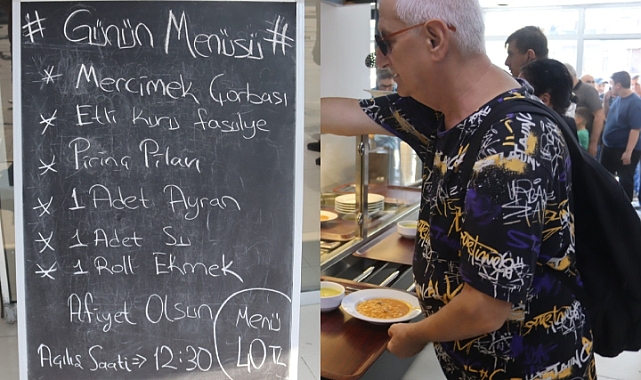 # Günün Menüsü #
* Mercimek Çorbası
* Etli Kuru fasülye
* Pirinç Pilavı
* 1 Adet Ayran
* 1 Adet Su
* 1 Roll Ekmek
Afiyet Olsun
Açılış Saati => 12:30
Menü
40 TL